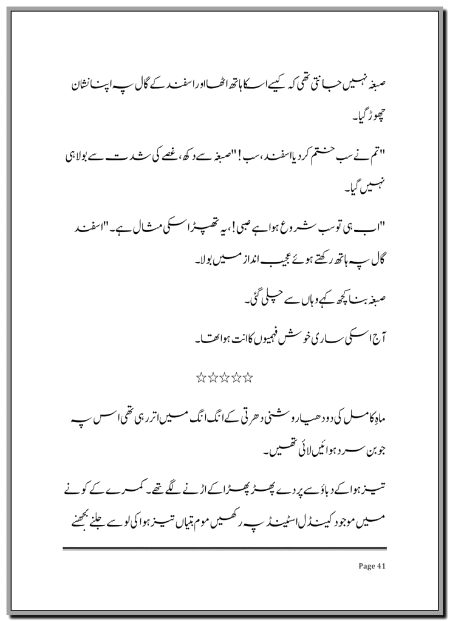 صبغہ نہیں جانتی تھی کہ کیسے اسکا ہاتھ اٹھا اور اسفند کے گال پہ اپنا نشان
چھوڑ گیا۔
"تم نے سب ختم کر دیا اسفند، سب!" صبغہ سے دکھ، غصے کی شدت سے بولا ہی
نہیں گیا۔
"اب ہی تو سب شروع ہوا ہے صبی!، یہ تھپڑ اسکی مثال ہے۔" اسفند
گال پہ ہاتھ رکھتے ہوئے عجیب انداز میں بولا۔
صبغہ بنا کچھ کہے وہاں سے چلی گئی۔
آج اسکی ساری خوش فہمیوں کا انت ہوا تھا۔
☆☆☆☆☆
ماہِ کامل کی دودھیا روشنی دھرتی کے انگ انگ میں اتر رہی تھی اس پہ
جو بن سرد ہوائیں لائی تھیں۔
تیز ہوا کے دباؤ سے پردے پھڑپھڑا کے اڑنے لگے تھے۔ کمرے کے کونے
میں موجود کینڈل اسٹینڈ پہ رکھیں موم بتیاں تیز ہوا کی لو سے جلنے بجھنے
Page 41